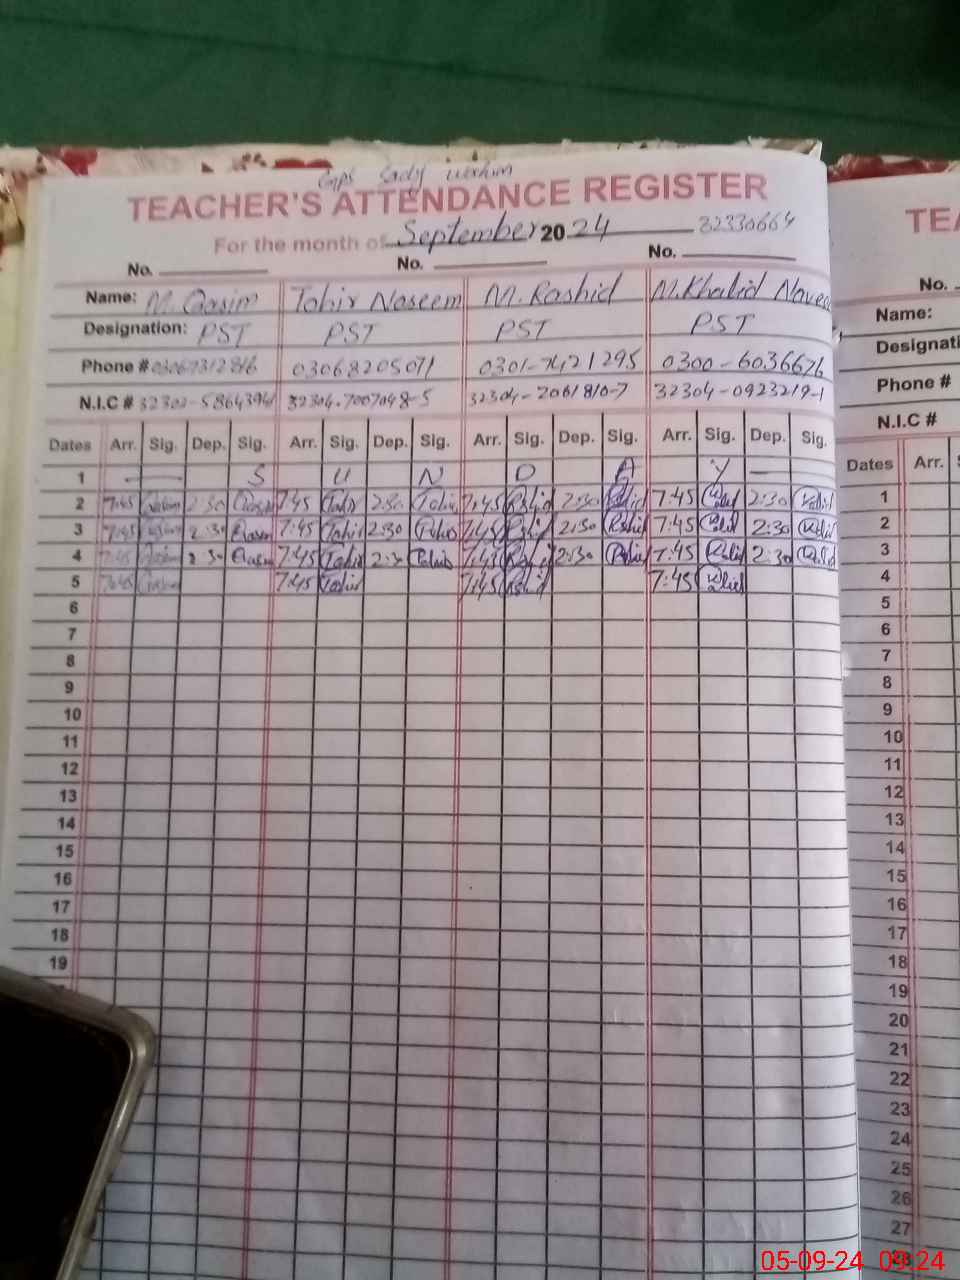 TEACHER'S ATTENDANCE REGISTER
For the month of September 2024 32330664
No. No. No.
Name: M. Qasim Tahir Naseem M. Rashid M. Khalid
Designation: PST PST PST PST
Phone # 03068205071 0301-7421295 0300-6036676
N.I.C # 32304-7007048-5 32304-2061810-7 32304-0923219-1
Dates Arr. Sig. Dep. Sig. Arr. Sig. Dep. Sig. Arr. Sig. Dep. Sig. Arr. Sig. Dep. Sig.
1 S U N D A Y
2 7:45 Qasim 2:30 Qasim 7:45 Tahir 2:30 Tahir 7:45 Rashid 2:30 Rashid 7:45 Khalid 2:30 Khalid
3 7:45 Qasim 2:30 Qasim 7:45 Tahir 2:30 Tahir 7:45 Rashid 2:30 Rashid 7:45 Khalid 2:30 Khalid
4 7:45 Qasim 2:30 Qasim 7:45 Tahir 2:30 Tahir 7:45 Rashid 2:30 Rashid 7:45 Khalid 2:30 Khalid
5 7:45 Qasim 7:45 Tahir 7:45 Rashid 7:45 Khalid
6
7
8
9
10
11
12
13
14
15
16
17
18
19
TEA
No.
Name:
Designati
Phone #
N.I.C #
Dates Arr.
1
2
3
4
5
6
7
8
9
10
11
12
13
14
15
16
17
18
19
20
21
22
23
24
25
26
27
05-09-24 09:24